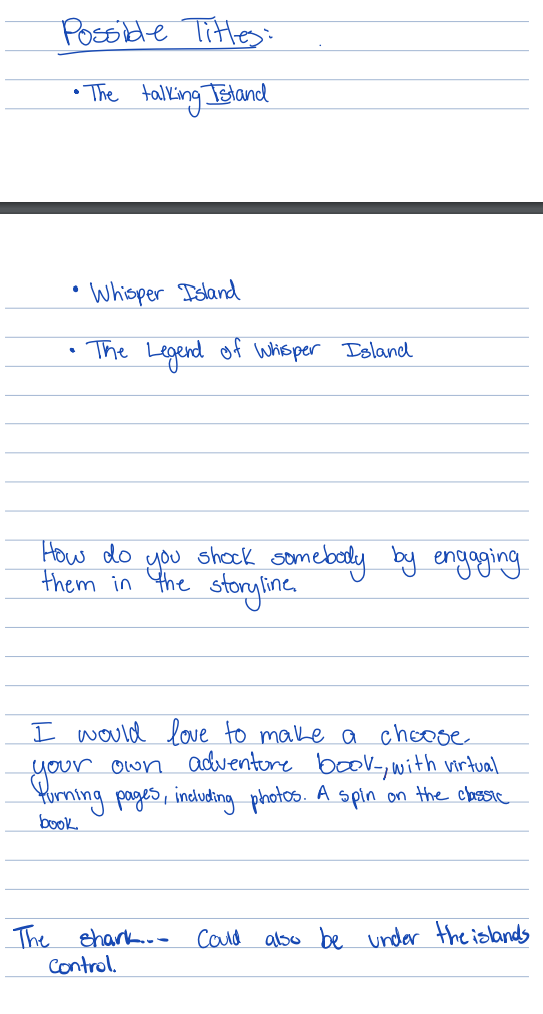 Possible Titles:
• The talking Island
• Whisper Island
• The Legend of Whisper Island
How do you shock somebody by engaging
them in the storyline.
I would love to make a choose
your own adventure book, with virtual
turning pages, including photos. A spin on the classic
book
The shark... Could also be under the islands
control.